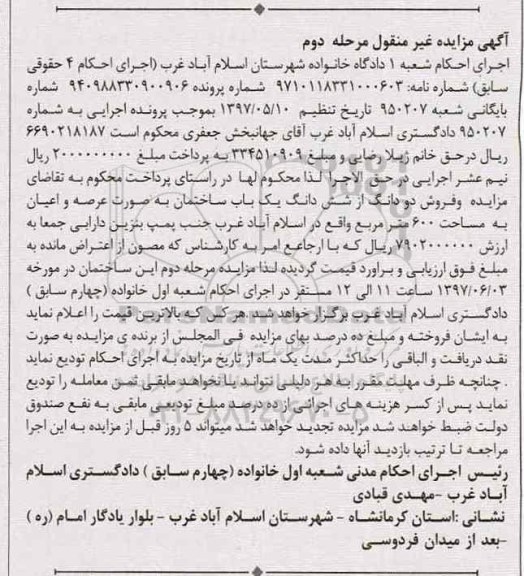 آگهی مزایده غیر منقول مرحله دوم
اجرای احکام شعبه ۱ دادگاه خانواده شهرستان اسلام آباد غرب (اجرای احکام ۴ حقوقی
سابق) شماره نامه: ۹۷۱۰۱۱۸۳۳۱۰۰۰۶۰۳ شماره پرونده ۹۴۰۹۸۸۳۳۰۹۰۰۹۰۶ شماره
بایگانی شعبه ۹۵۰۲۰۷ تاریخ تنظیم ۱۳۹۷/۰۵/۱۰ بموجب پرونده اجرایی به شماره
۹۵۰۲۰۷ دادگستری اسلام آباد غرب آقای جهانبخش جعفری محکوم است ۶۶۹۰۲۱۸۱۸۷
ریال درحق خانم ژیلا رضایی و مبلغ ۳۳۴۵۱۰۹۰۹ به پرداخت مبلغ ۲۰۰۰۰۰۰۰۰۰ ریال
نیم عشر اجرایی در حق الاجرا لذا محکوم لها در راستای پرداخت محکوم به تقاضای
مزایده وفروش دو دانگ از شش دانگ یک باب ساختمان به صورت عرصه و اعیان
به مساحت ۶۰۰ متر مربع واقع در اسلام آباد غرب جنب پمپ بنزین دارابی جمعا به
ارزش ۷۹۰۲۰۰۰۰۰۰ ریال که با ارجاع امر به کارشناس که مصون از اعتراض مانده به
مبلغ فوق ارزیابی و براورد قیمت گردیده لذا مزایده مرحله دوم این ساختمان در مورخه
۱۳۹۷/۰۶/۰۳ ساعت ۱۱ الی ۱۲ مستقر در اجرای احکام شعبه اول خانواده (چهارم سابق )
دادگستری اسلام آباد غرب برگزار خواهد شد .هر کس که بالاترین قیمت را اعلام نماید
به ایشان فروخته و مبلغ ده درصد بهای مزایده فی المجلس از برنده ی مزایده به صورت
نقد دریافت و الباقی را حداکثر مدت یک ماه از تاریخ مزایده به اجرای احکام تودیع نماید
. چنانچه ظرف مهلت مقرر به هر دلیلی نتواند یا نخواهد مابقی ثمن معامله را تودیع
نماید پس از کسر هزینه های اجرائی از ده درصد مبلغ تودیعی مابقی به نفع صندوق
دولت ضبط خواهد شد مزایده تجدید خواهد شد میتواند ۵ روز قبل از مزایده به این اجرا
مراجعه تا ترتیب بازدید آنها داده شود.
رئیس اجرای احکام مدنی شعبه اول خانواده (چهارم سابق ) دادگستری اسلام
آباد غرب -مهدی قبادی
نشانی :استان کرمانشاه - شهرستان اسلام آباد غرب - بلوار یادگار امام (ره )
-بعد از میدان فردوسی